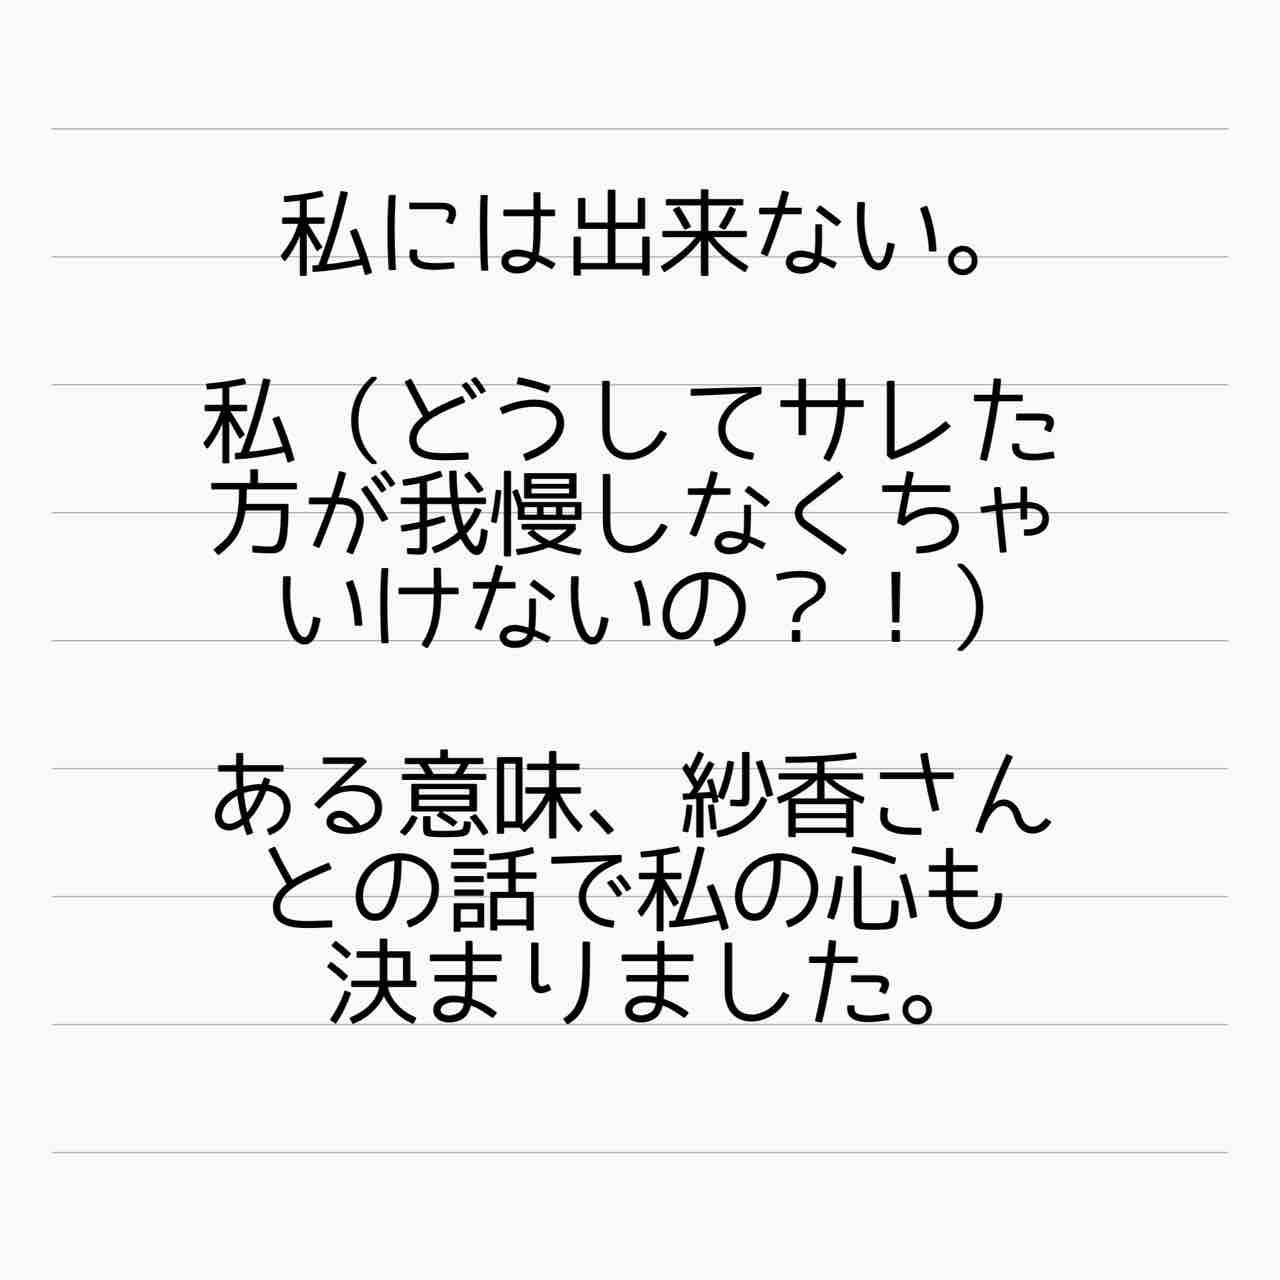 私には出来ない。
私（どうしてサレた
方が我慢しなくちゃ
いけないの？！）
ある意味、紗香さん
との話で私の心も
決まりました。